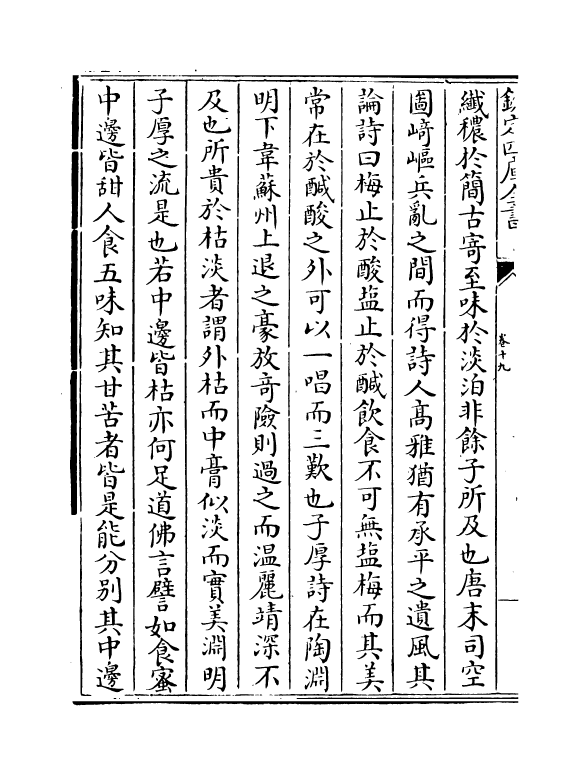 欽定四庫全書
卷十九
纖穠於簡古寄至味於淡泊非餘子所及也唐末司空
圖﨑嶇兵亂之間而得詩人髙雅猶有承平之遺風其
論詩曰梅止於酸盐止於鹹飲食不可無盐梅而其美
常在於鹹酸之外可以一唱而三歎也子厚詩在陶淵
明下韋蘇州上退之豪放竒險則過之而温麗靖深不
及也所貴於枯淡者謂外枯而中膏似淡而實美淵明
子厚之流是也若中邊皆枯亦何足道佛言譬如食蜜
中邊皆甜人食五味知其甘苦者皆是能分别其中邊